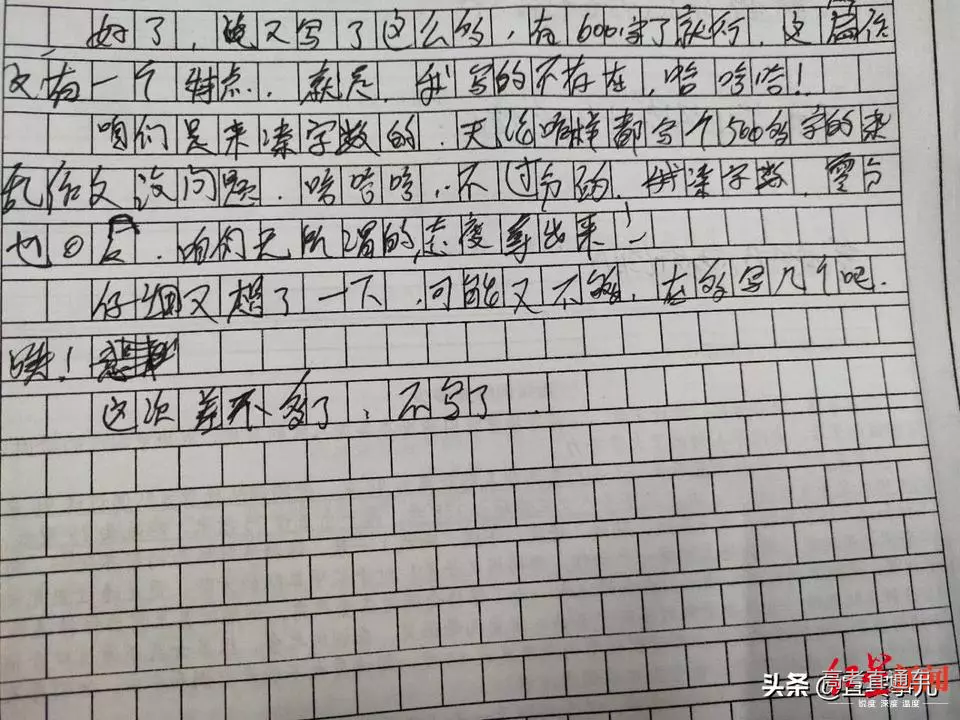 好了，我又写了这么多，在600字了就行，这篇作
文有一个特点，就是，我写的不存在，哈哈哈！
咱们是来凑字数的，无论咋样都写个500多字的杂
乱作文没问题，哈哈哈，不过分的，凑字数，零分
也⊙，咱们无所谓的态度拿出来！
仔细又想了一下，可能又不够，在多写几个吧，
唉！悲
这次差不多了，不写了。
高考直通车
锐度 深度 温度
头条